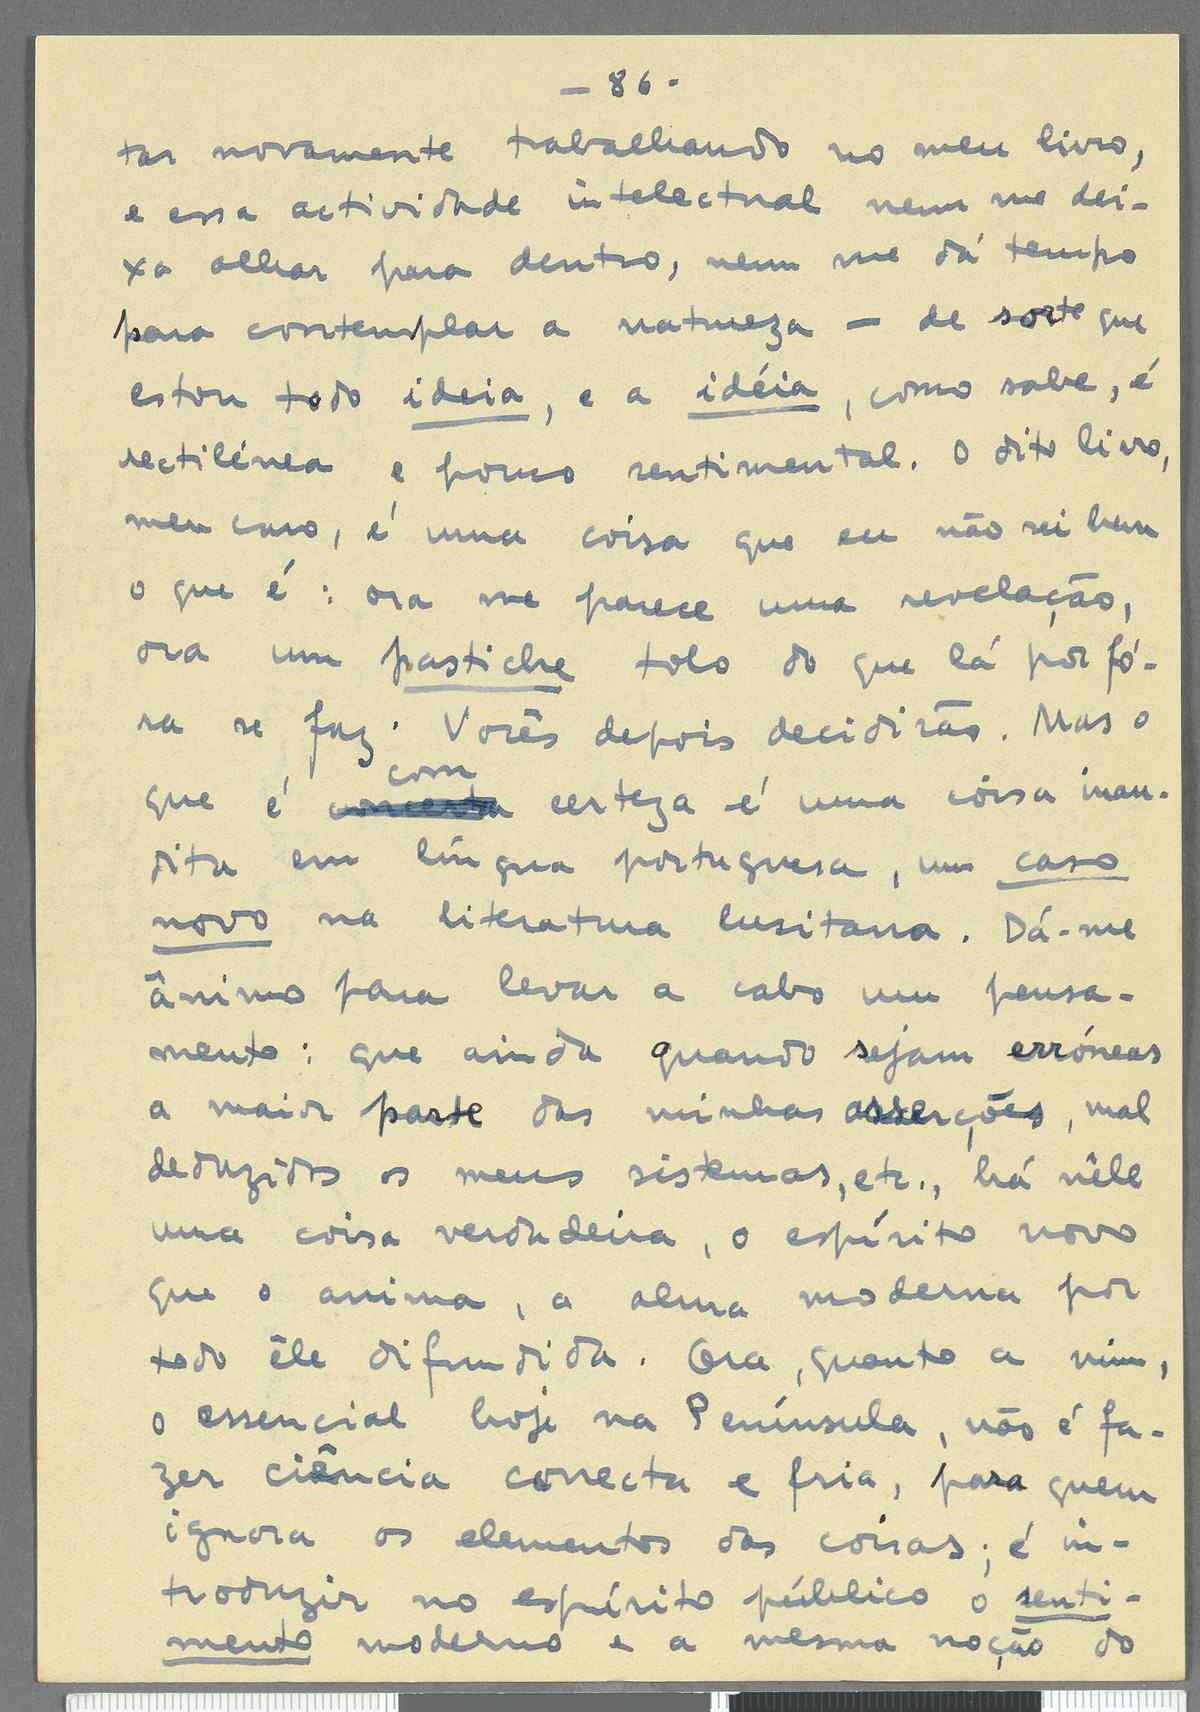 — 86 -
tar novamente trabalhando no meu livro,
e essa actividade intelectual nem me dei-
xa olhar para dentro, nem me dá tempo
para contemplar a natureza — de sorte que
estou todo ideia, e a idéia, como sabe, é
rectilínea e pouco sentimental. O dito livro,
meu caro, é uma coisa que eu não sei bem
o que é: ora me parece uma revelação,
ora um pastiche tolo do que lá por fó-
ra se faz. Vocês depois decidirão. Mas o
com
que é certeza é uma coisa inau-
dita em língua portuguesa, um caso
novo na literatura lusitana. Dá-me
ânimo para levar a cabo um pensa-
mento: que ainda quando sejam erróneas
a maior parte das minhas asserções, mal
deduzidos os meus sistemas, etc., há nêle
uma coisa verdadeira, o espírito novo
que o anima, a alma moderna por
todo êle difundida. Ora, quanto a mim,
o essencial hoje na Península, não é fa-
zer ciência correcta e fria, para quem
ignora os elementos das coisas; é in-
troduzir no espírito público o senti-
mento moderno e a mesma noção do